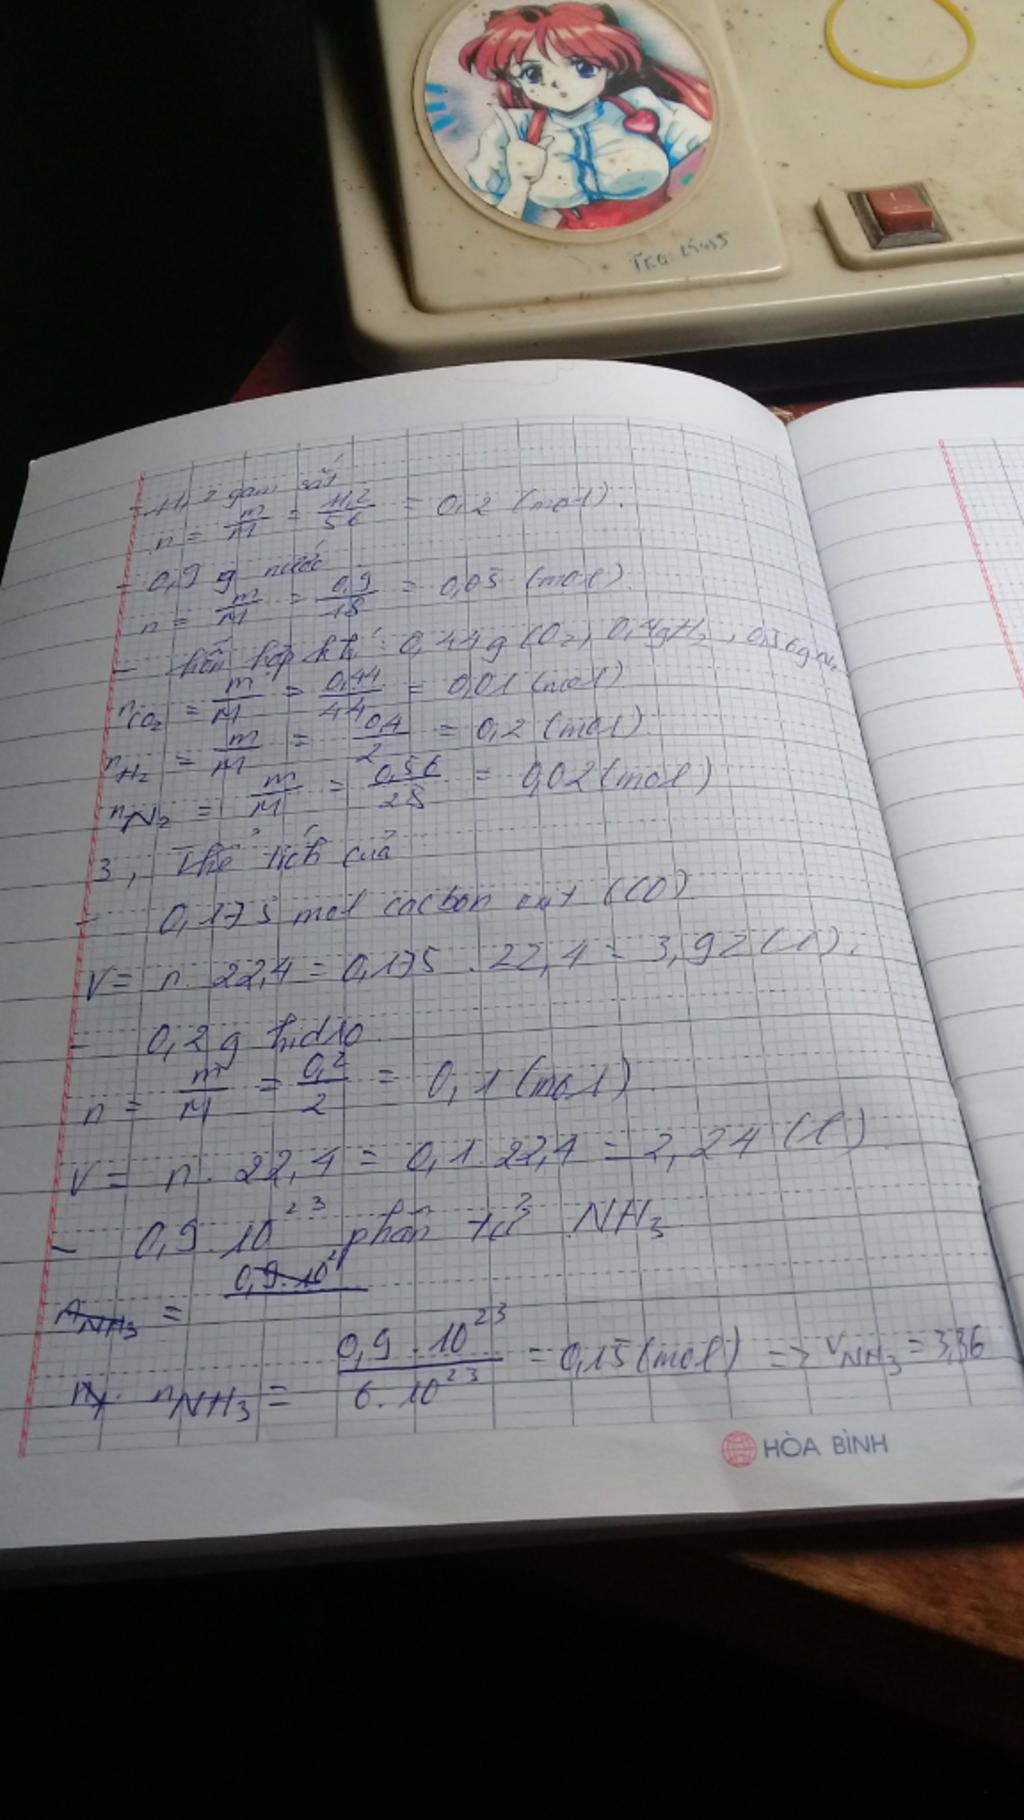 TKQ
- 11,2 gam sắt
n = m/M = 11,2/56 = 0,2 (mol).
- 0,9 g nước
n = m/M = 0,9/18 = 0,05 (mol)
- hỗn hợp khí: 0,44g CO2, 0,4g H2, 0,56g N2
nCO2 = m/M = 0,44/44 = 0,01 (mol)
nH2 = m/M = 0,4/2 = 0,2 (mol)
nN2 = m/M = 0,56/28 = 0,02 (mol)
3, Thể tích của
- 0,175 mol cacbon oxit (CO)
V = n . 22,4 = 0,175 . 22,4 = 3,92 (l).
- 0,2 g hidro
n = m/M = 0,2/2 = 0,1 (mol).
V = n . 22,4 = 0,1 . 22,4 = 2,24 (l)
- 0,9 . 10^23 phân tử NH3
nNH3 = 0,9 . 10^2
nNH3 = 0,9 . 10^23 / 6 . 10^23 = 0,15 (mol) => VNH3 = 3,36
HÒA BÌNH